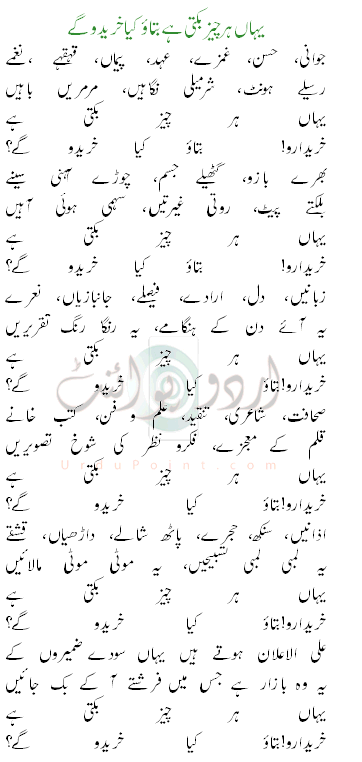 یہاں ہر چیز بکتی ہے بتاؤ کیا خریدو گے
جوانی، حسن، غمزے، عہد، پیماں، قہقہے ،نغمے
رسیلے ہونٹ، شرمیلی نگاہیں، مرمریں باہیں
یہاں ہر چیز بکتی ہے
خریدارو! بتاؤ کیا خریدو گے؟
بھرے بازو، گٹھیلے جسم، چوڑے آہنی سینے
بلکتے پیٹ، روتی غیرتیں، سہمی ہوئی آہیں
یہاں ہر چیز بکتی ہے
خریدارو! بتاؤ کیا خریدو گے؟
زبانیں، دل، ارادے، فیصلے، جانبازیاں، نعرے
یہ آئے دن کے ہنگامے، یہ رنگا رنگ تقریریں
یہاں ہر چیز بکتی ہے
خریدارو!بتاؤ کیا خریدو گے؟
صحافت، شاعری، تنقید، علم و فن، کتب خانے
قلم کے معجزے، فکرو نظر کی شوخ تصویریں
یہاں ہر چیز بکتی ہے
خریدارو!بتاؤ کیا خریدو گے؟
اذانیں، سنکھ، حجرے، پاٹھ شالے، داڑھیاں، قشقے
یہ لمبی لمبی تسبیحیں، یہ موٹی موٹی مالائیں
یہاں ہر چیز بکتی ہے
خریدارو!بتاؤ کیا خریدو گے؟
علی الاعلان ہوتے ہیں یہاں سودے ضمیروں کے
یہ وہ بازار ہے جس میں فرشتے آ کے بک جائیں
یہاں ہر چیز بکتی ہے
خریدارو!بتاؤ کیا خریدو گے؟
اردو پوائنٹ
UrduPoint.com